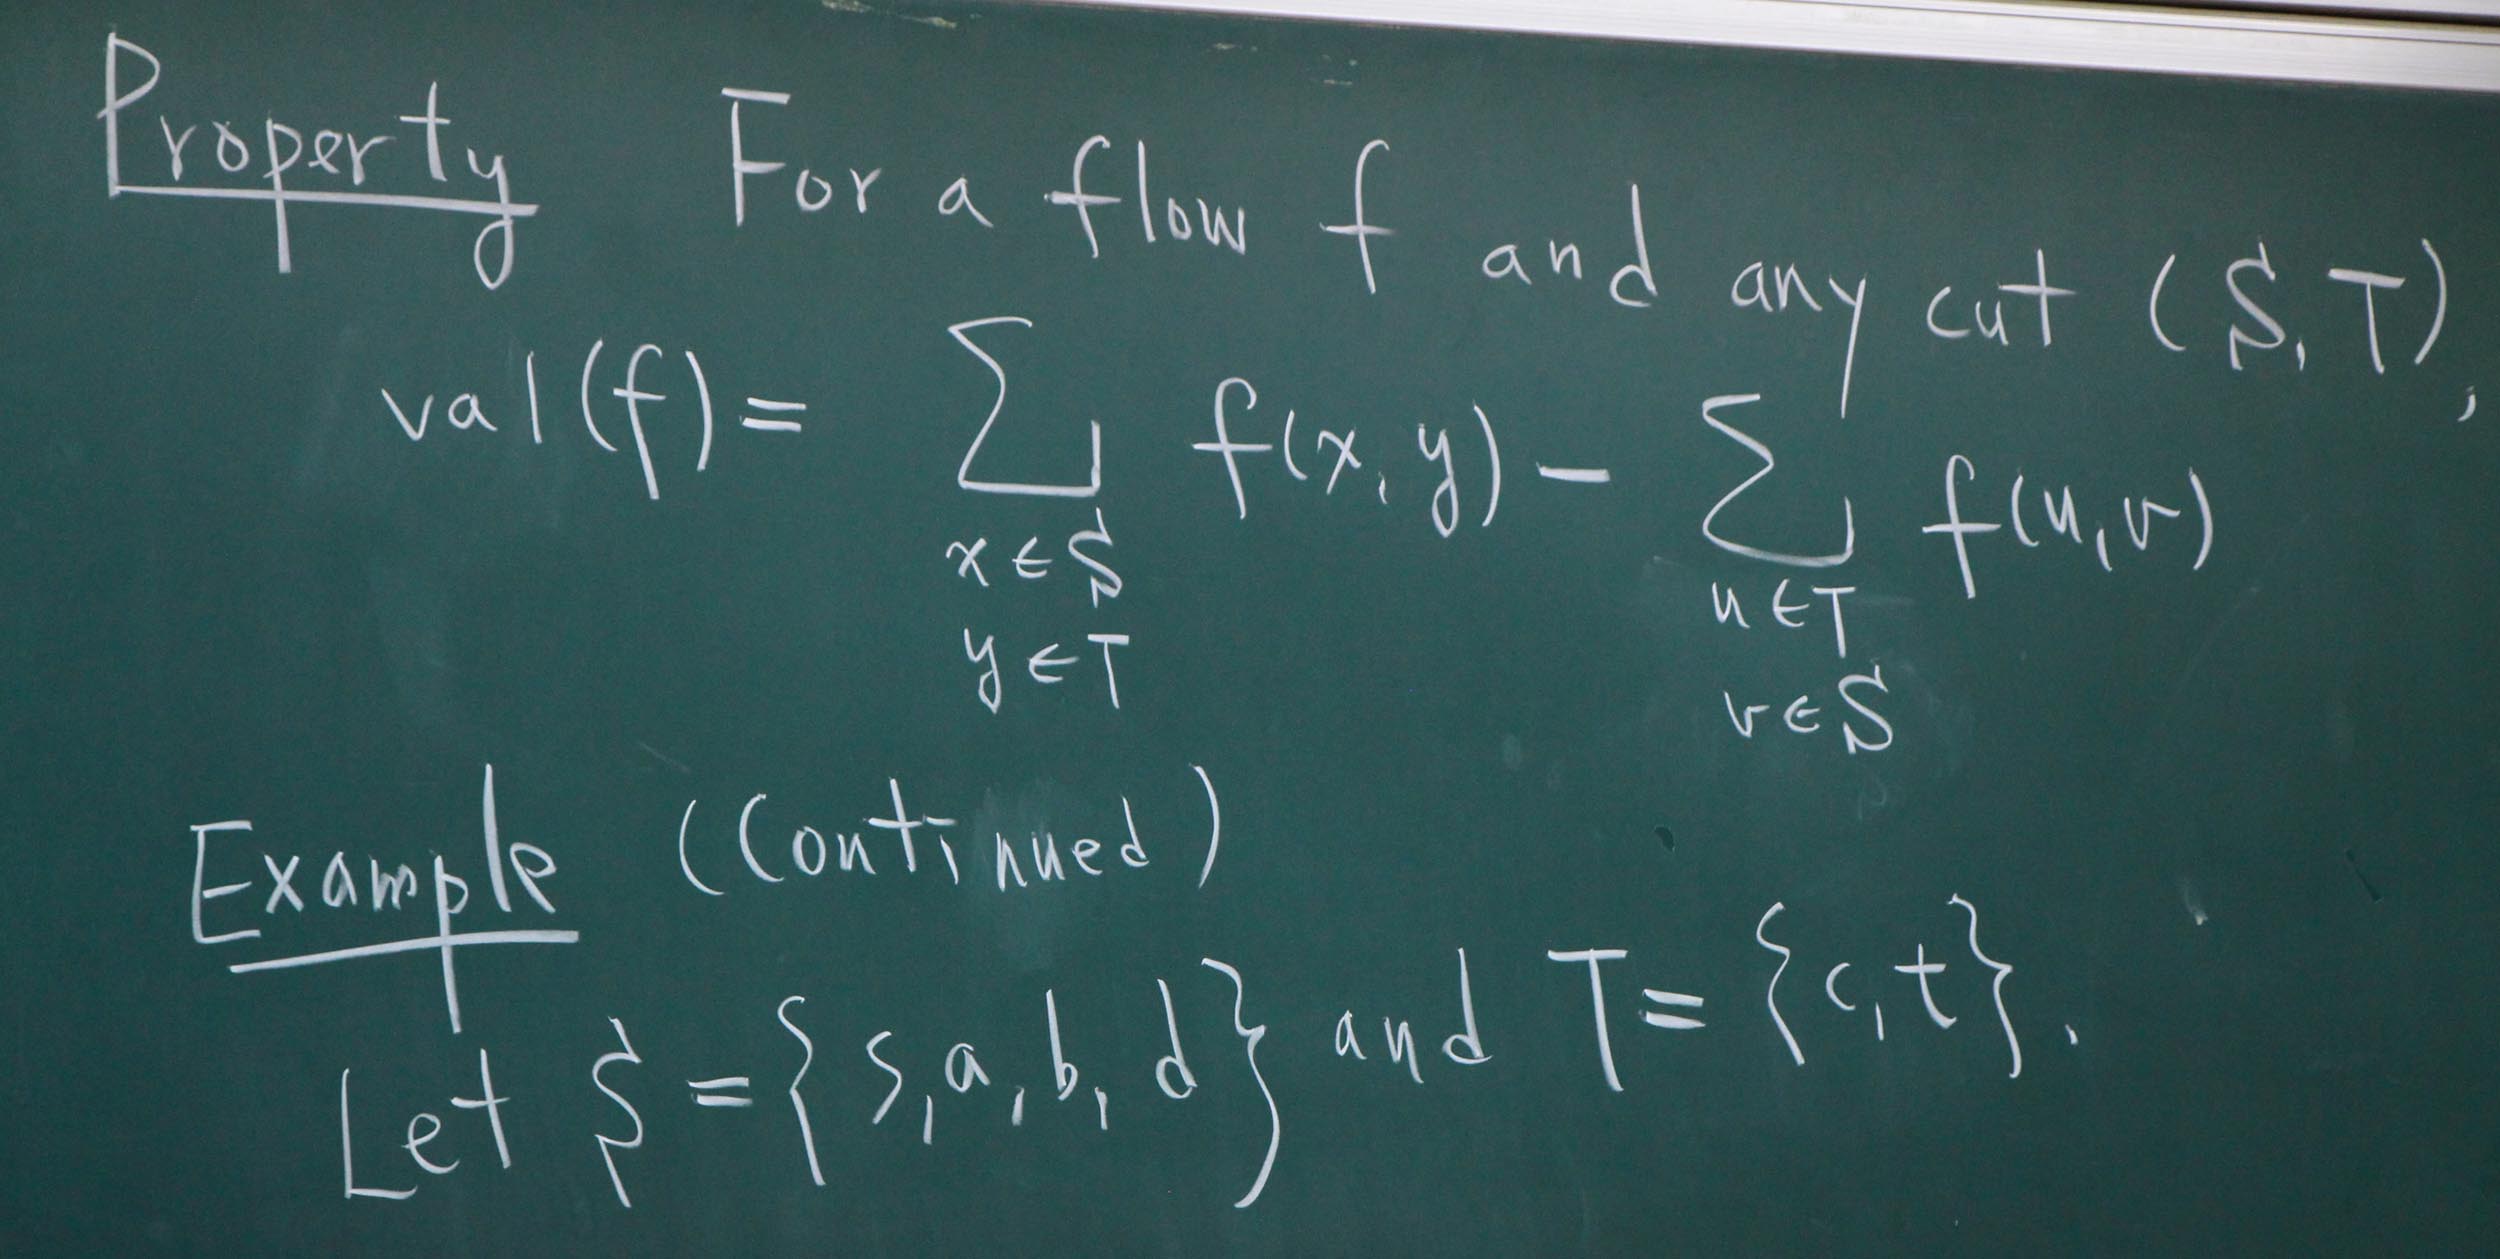 Property For a flow f and any cut (S, T),
val(f) = ∑ f(x, y) - ∑ f(u, v)
x ∈ S u ∈ T
y ∈ T v ∈ S
Example (Continued)
Let S = {s, a, b, d} and T = {c, t}.